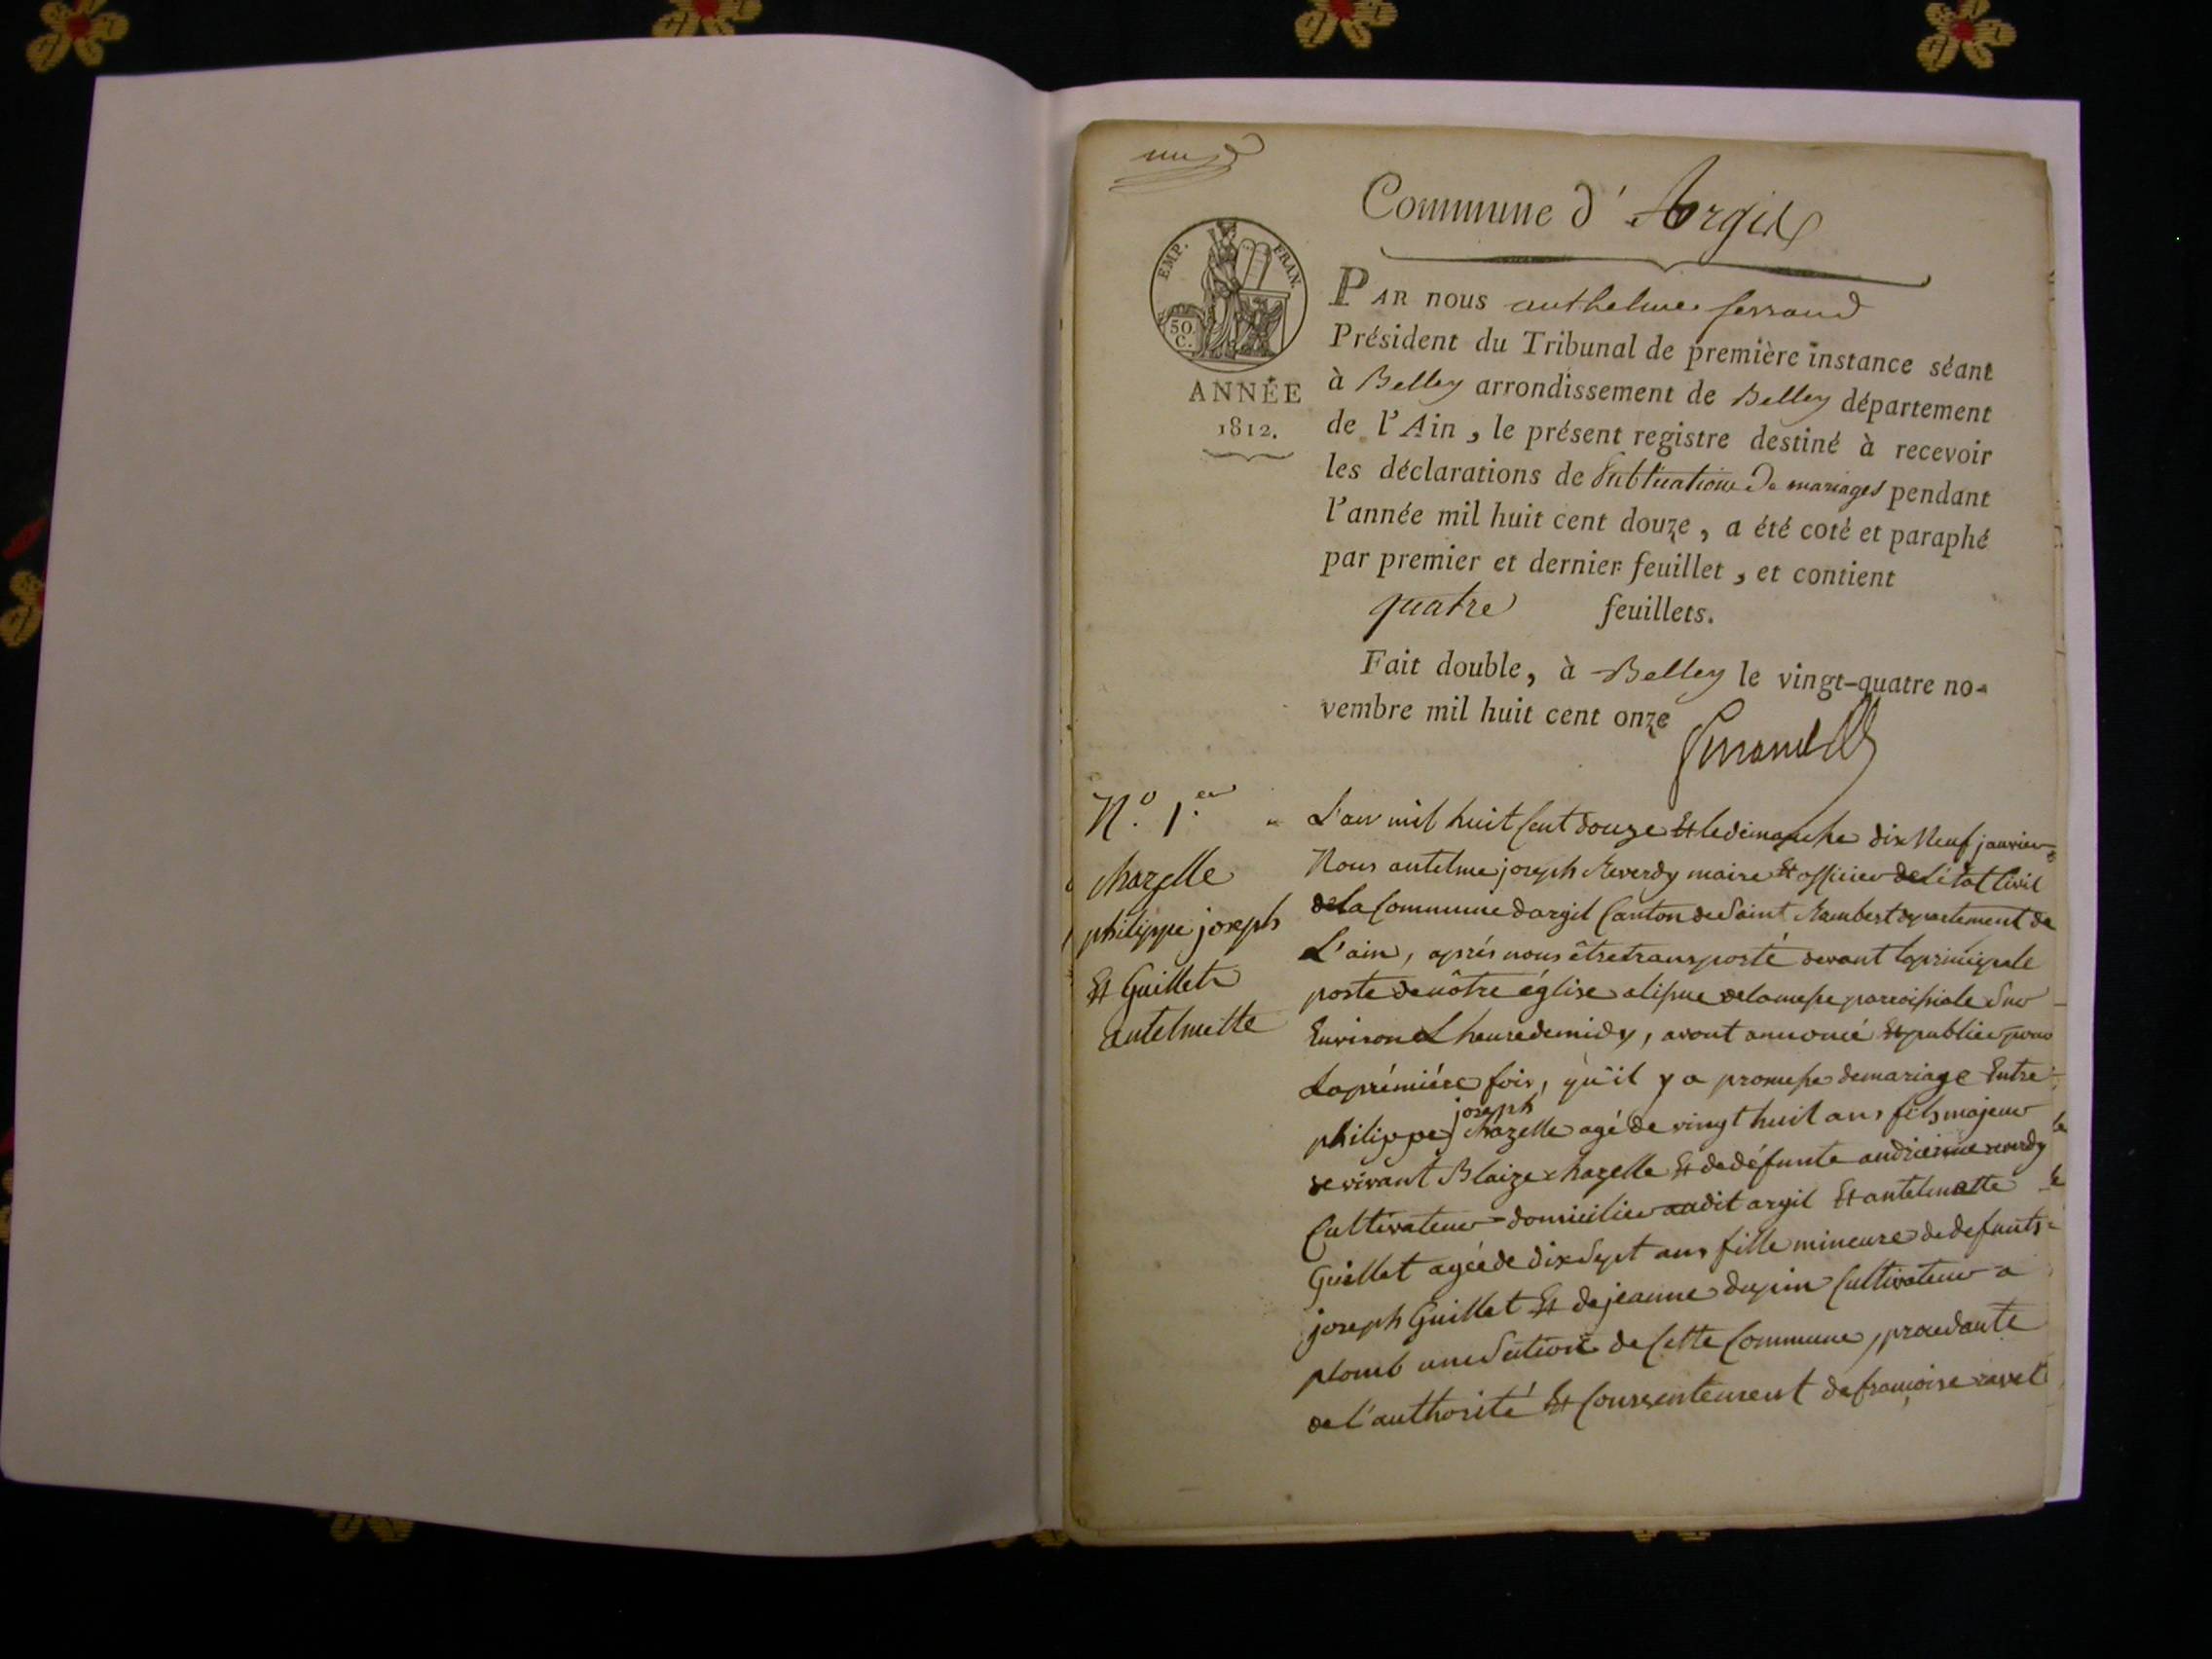 un
Commune d'Argil
EMP. FRAN.
50.
C.
ANNÉE
1812.
PAR nous anthelme ferrand
Président du Tribunal de première instance séant
à Belley arrondissement de Belley département
de l'Ain, le présent registre destiné à recevoir
les déclarations de Publications de mariages pendant
l'année mil huit cent douze, a été coté et paraphé
par premier et dernier feuillet, et contient
quatre feuillets.
Fait double, à Belley le vingt-quatre no-
vembre mil huit cent onze
Ferrand
N.º 1.er
chazelle
philippe joseph
Et Guillet
antelmette
L'an mil huit Cent douze Et le dimanche dix Neuf janvier
Nous antelme joseph Reverdy maire Et officier de L'état Civil
de la Commune dargil Canton de Saint Rambert departement de
L'ain, aprés nous être transporté devant la principale
porte de nôtre église a lissue de la messe paroissiale Sur
Environ L heure de midy, avont annoncé Et publier pour
La prémiére fois, qu'il y a promesse de mariage Entre
philippe joseph chazelle agé de vingt huit ans fils majeur
de vivant Blaize chazelle Et de défunte andrienne reverdy
Cultivateur domicilier audit argil Et antelmette
Guillet agée de dix Sept ans fille mineure de defunts
joseph Guillet Et de jeanne dupin Cultivateur a
plomb une Section de Cette Commune, procedante
de l'authorité Et Consentement de françoise ravet